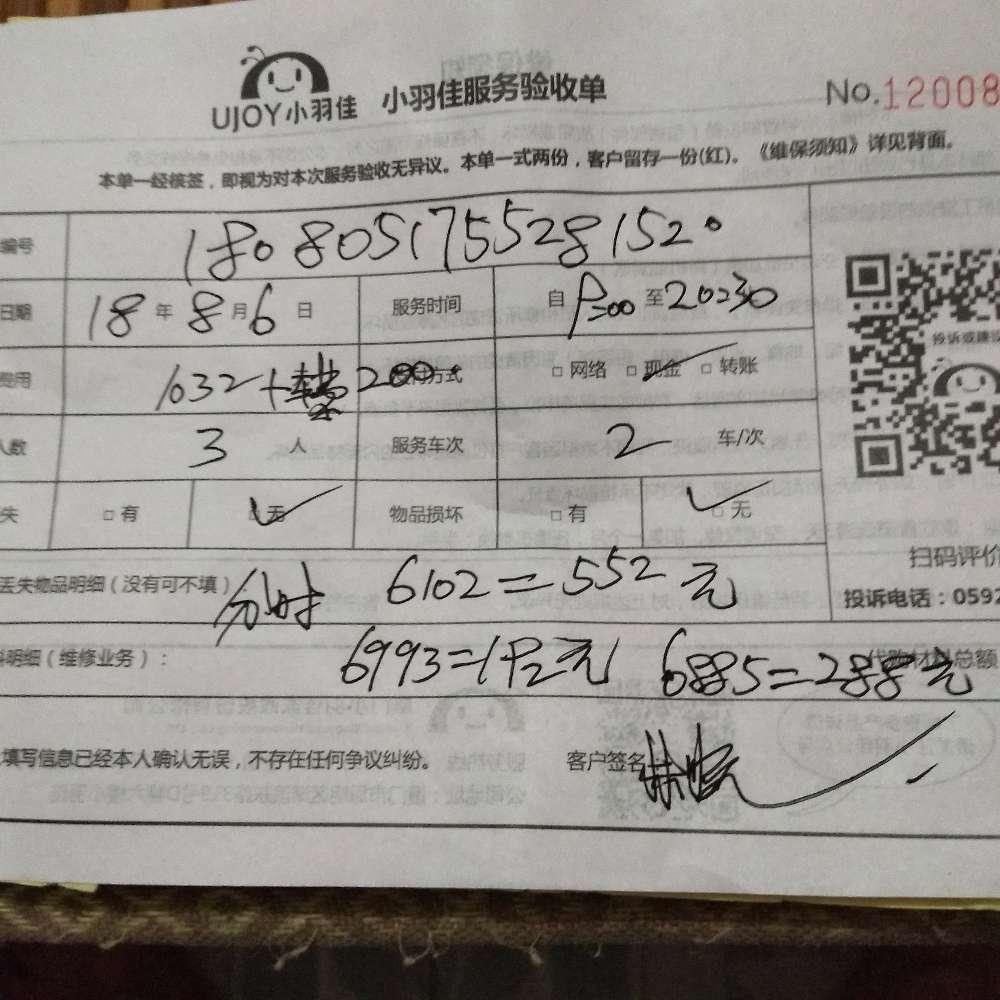 UJOY小羽佳 小羽佳服务验收单 No.12008
本单一经核签，即视为对本次服务验收无异议。本单一式两份，客户留存一份(红)。《维保须知》详见背面。
编号 1808051755281520
日期 18 年 8 月 6 日 服务时间 自 9:00 至 20:30
费用 1032+ 200 付方式 □ 网络 □ 现金 □ 转账
人数 3 人 服务车次 2 车/次
失 □ 有 □ 无 物品损坏 □ 有 □ 无
投诉或建议
UJOY
扫码评价
投诉电话：0592
丢失物品明细（没有可不填） 分时 6102=552元
料明细（维修业务）： 6993=192元 6885=288元 代购材料总额
填写信息已经本人确认无误，不存在任何争议纠纷。 客户签名